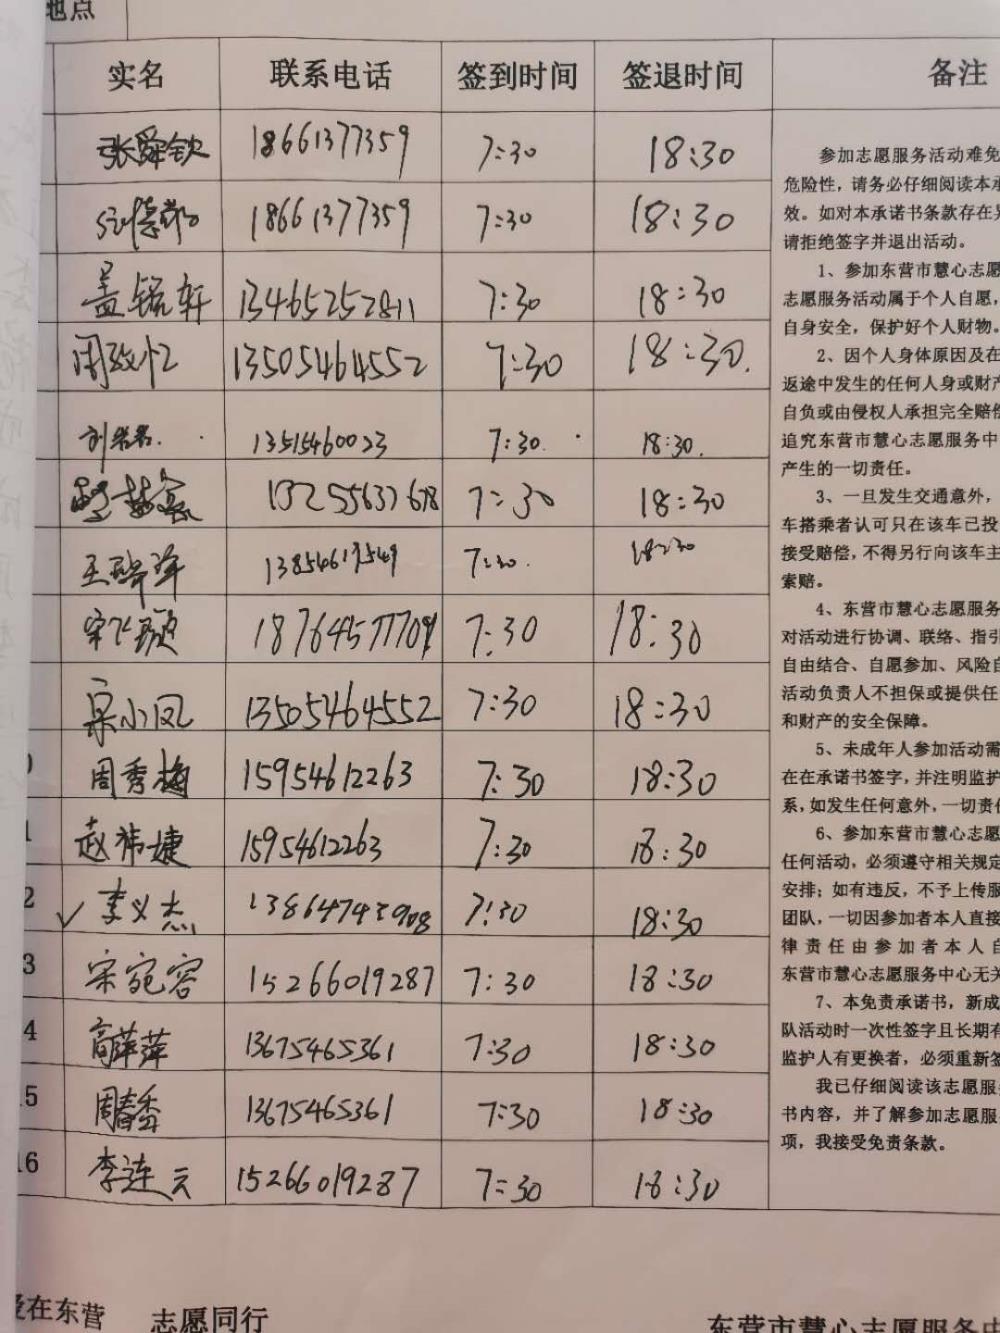 地点
实名 联系电话 签到时间 签退时间 备注
张舜钦 18661377359 7:30 18:30
18661377359 7:30 18:30
盖锐轩 13465252811 7:30 18:30
周致忆 13505464552 7:30 18:30.
刘 13515460023 7:30. 18:30.
13255637678 7:30 18:30
王 13854617549 7:30. 18:30
宋飞颖 18764577709 7:30 18:30
梁小凤 13505464552 7:30 18:30
周秀梅 15954612263 7:30 18:30
赵祎婕 15954612263 7:30 18:30
2 ✓ 李义杰 13864743908 7:30 18:30
3 宋宛容 15266019287 7:30 18:30
4 高萍萍 13675465361 7:30 18:30
15 周春香 13675465361 7:30 18:30
16 李连云 15266019287 7:30 18:30
参加志愿服务活动难免
危险性，请务必仔细阅读本承
效。如对本承诺书条款存在异
请拒绝签字并退出活动。
1、参加东营市慧心志愿
志愿服务活动属于个人自愿，
自身安全，保护好个人财物。
2、因个人身体原因及在
返途中发生的任何人身或财产
自负或由侵权人承担完全赔偿
追究东营市慧心志愿服务中
产生的一切责任。
3、一旦发生交通意外，
车搭乘者认可只在该车已投
接受赔偿，不得另行向该车主
索赔。
4、东营市慧心志愿服务
对活动进行协调、联络、指引
自由结合、自愿参加、风险自
活动负责人不担保或提供任
和财产的安全保障。
5、未成年人参加活动需
在在承诺书签字，并注明监护
系，如发生任何意外，一切责任
6、参加东营市慧心志愿
任何活动，必须遵守相关规定
安排；如有违反，不予上传服
团队，一切因参加者本人直接
律责任由参加者本人自
东营市慧心志愿服务中心无关
7、本免责承诺书，新成
队活动时一次性签字且长期有
监护人有更换者，必须重新签
我已仔细阅读该志愿服
书内容，并了解参加志愿服
项，我接受免责条款。
爱在东营 志愿同行 东营市慧心志愿服务中